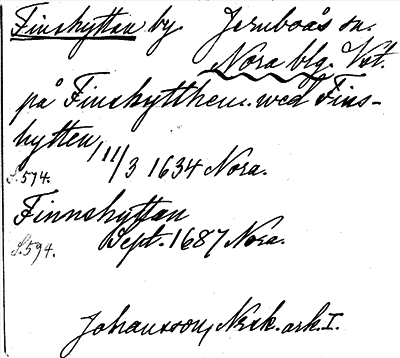 Finshyttan by Jernboås sn.
Nora blg. Vst.
på Finshytthen. wed Fins-
hytten, 11/3 1634 Nora.
S. 574.
Finnshyttan
Sept. 1687 Nora.
S. 594.
Johansson, Nerk. ark. I.